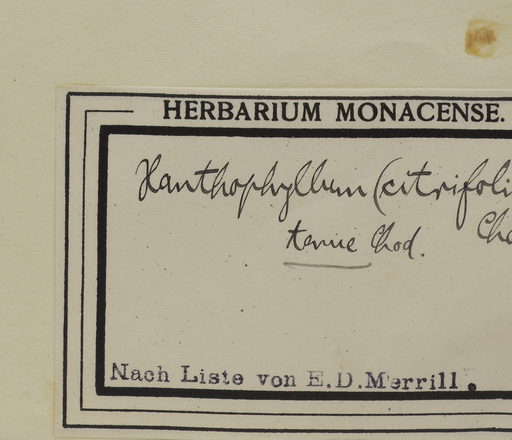 HERBARIUM MONACENSE.
Xanthophyllum (citrifoli
tenue Chod.
Nach Liste von E.D.Merrill.